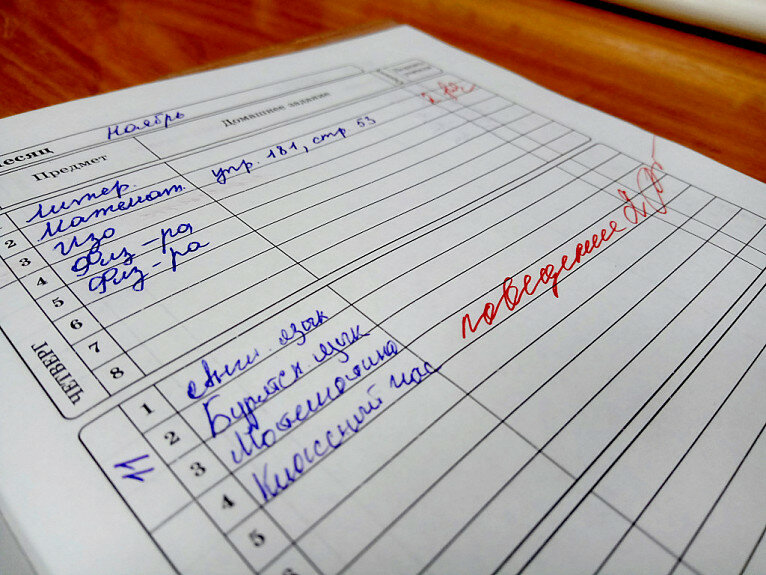 месяц ноябрь
Предмет Домашнее задание
1 Литер. 2
2 Математ. упр. 181, стр 53
3 Изо
4 Физ-ра
5 Физ-ра
6
7
8
ЧЕТВЕРГ
1 Англ. язык
2 Бурятск. язык поведение 2
3 Математика
4 Классный час
5
6
11